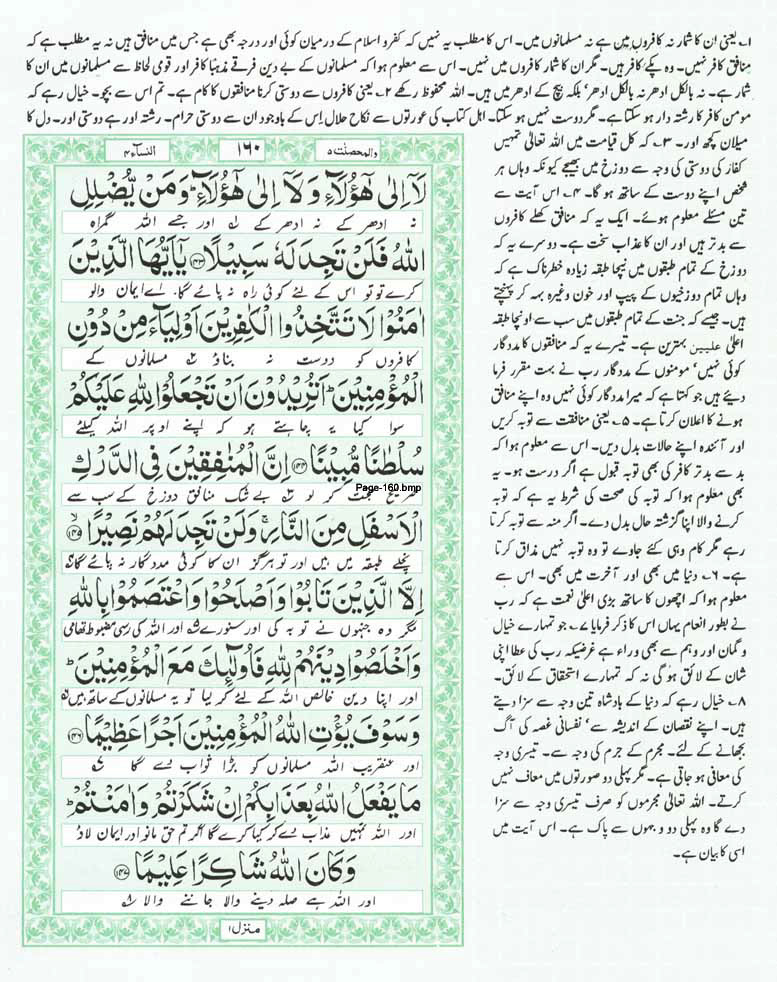 ۱؎ یعنی ان کا شمار نہ کافروں میں ہے نہ مسلمانوں میں۔ اس کا مطلب یہ نہیں کہ کفر و اسلام کے درمیان کوئی اور درجہ بھی ہے جس میں منافق ہیں نہ یہ مطلب ہے کہ
منافق کافر نہیں۔ وہ پکے کافر ہیں۔ مگر ان کا شمار کافروں میں نہیں۔ اس سے معلوم ہوا کہ مسلمانوں کے بے دین فرقے مذہباً کافر اور قومی لحاظ سے مسلمانوں میں ان کا
شمار ہے۔ نہ بالکل ادھر نہ بالکل ادھر' بلکہ بیچ کے ادھر میں ہیں۔ اللہ محفوظ رکھے ۲؎ یعنی کافروں سے دوستی کرنا منافقوں کا کام ہے۔ تم اس سے بچو۔ خیال رہے کہ
مومن کافر کا رشتہ دار ہو سکتا ہے۔ مگر دوست نہیں ہو سکتا۔ اہل کتاب کی عورتوں سے نکاح حلال اس کے باوجود ان سے دوستی حرام۔ رشتہ اور ہے دوستی اور۔ دل کا
میلان کچھ اور۔ ۳؎ کہ کل قیامت میں اللہ تعالیٰ تمہیں
کفار کی دوستی کی وجہ سے دوزخ میں بھیجے کیونکہ وہاں ہر
شخص اپنے دوست کے ساتھ ہو گا۔ ۴؎ اس آیت سے
تین مسئلے معلوم ہوئے۔ ایک یہ کہ منافق کھلے کافروں
سے بدتر ہیں اور ان کا عذاب سخت ہے۔ دوسرے یہ کہ
دوزخ کے تمام طبقوں میں نیچا طبقہ زیادہ خطرناک ہے کہ
وہاں تمام دوزخیوں کے پیپ اور خون وغیرہ بہہ کر پہنچتے
ہیں۔ جیسے کہ جنت کے تمام طبقوں میں سب سے اونچا طبقہ
اعلیٰ علیین بہترین ہے۔ تیسرے یہ کہ منافقوں کا مددگار
کوئی نہیں' مومنوں کے مددگار رب نے بہت مقرر فرما
دیئے ہیں جو کہتا ہے کہ میرا مددگار کوئی نہیں وہ اپنے منافق
ہونے کا اعلان کرتا ہے۔ ۵؎ یعنی منافقت سے توبہ کریں
اور آئندہ اپنے حالات بدل دیں۔ اس سے معلوم ہوا کہ
بد سے بدتر کافر کی بھی توبہ قبول ہے اگر درست ہو۔ یہ
بھی معلوم ہوا کہ توبہ کی صحت کی شرط یہ ہے کہ توبہ
کرنے والا اپنا گزشتہ حال بدل دے۔ اگر منہ سے توبہ کرتا
رہے مگر کام وہی کئے جاوے تو وہ توبہ نہیں مذاق کرتا
ہے۔ ۶؎ دنیا میں بھی اور آخرت میں بھی۔ اس سے
معلوم ہوا کہ اچھوں کا ساتھ بڑی اعلیٰ نعمت ہے کہ رب
نے بطور انعام یہاں اس کا ذکر فرمایا ۷؎ جو تمہارے خیال
و گمان اور وہم سے بھی وراء ہے غرضیکہ رب کی عطا اپنی
شان کے لائق ہو گی نہ کہ تمہارے استحقاق کے لائق۔
۸؎ خیال رہے کہ دنیا کے بادشاہ تین وجہ سے سزا دیتے
ہیں۔ اپنے نقصان کے اندیشہ سے' نفسانی غصہ کی آگ
بجھانے کے لئے۔ مجرم کے جرم کی وجہ سے۔ تیسری وجہ
کی معافی ہو جاتی ہے۔ مگر پہلی دو صورتوں میں معاف نہیں
کرتے۔ اللہ تعالیٰ مجرموں کو صرف تیسری وجہ سے سزا
دے گا وہ پہلی دو وجہوں سے پاک ہے۔ اس آیت میں
اسی کا بیان ہے۔
والمحصنٰت ۵ ۱۶۰ النساء ۴
لَآ اِلٰى هٰٓؤُلَآءِ وَلَآ اِلٰى هٰٓؤُلَآءِ ؕ وَمَنْ يُّضْلِلِ
نہ ادھر کے نہ ادھر کے ۱؎ اور جسے اللہ گمراہ
اللّٰهُ فَلَنْ تَجِدَ لَهٗ سَبِيْلًا ﴿۱۴۳﴾ يٰٓاَيُّهَا الَّذِيْنَ
کرے تو تو اس کے لئے کوئی راہ نہ پائے گا۔ اے ایمان والو
اٰمَنُوْا لَا تَتَّخِذُوا الْكٰفِرِيْنَ اَوْلِيَآءَ مِنْ دُوْنِ
کافروں کو دوست نہ بناؤ ۲؎ مسلمانوں کے
الْمُؤْمِنِيْنَ ؕ اَتُرِيْدُوْنَ اَنْ تَجْعَلُوْا لِلّٰهِ عَلَيْكُمْ
سوا کیا یہ چاہتے ہو کہ اپنے اوپر اللہ کیلئے
سُلْطٰنًا مُّبِيْنًا ﴿۱۴۴﴾ اِنَّ الْمُنٰفِقِيْنَ فِى الدَّرْكِ
صریح حجت کر لو ۳؎ بے شک منافق دوزخ کے سب سے
Page-160.bmp
الْاَسْفَلِ مِنَ النَّارِ ۚ وَلَنْ تَجِدَ لَهُمْ نَصِيْرًا ﴿۱۴۵﴾ ۙ
نچلے طبقہ میں ہیں اور تو ہرگز ان کا کوئی مددگار نہ پائے گا ۴؎
اِلَّا الَّذِيْنَ تَابُوْا وَاَصْلَحُوْا وَاعْتَصَمُوْا بِاللّٰهِ
مگر وہ جنہوں نے توبہ کی اور سنورے ۵؎ اور اللہ کی رسی مضبوط تھامی
وَاَخْلَصُوْا دِيْنَهُمْ لِلّٰهِ فَاُولٰٓئِكَ مَعَ الْمُؤْمِنِيْنَ ؕ
اور اپنا دین خالص اللہ کے لئے کر لیا تو یہ مسلمانوں کے ساتھ ہیں ۶؎
وَسَوْفَ يُؤْتِ اللّٰهُ الْمُؤْمِنِيْنَ اَجْرًا عَظِيْمًا ﴿۱۴۶﴾
اور عنقریب اللہ مسلمانوں کو بڑا ثواب دے گا ۷؎
مَا يَفْعَلُ اللّٰهُ بِعَذَابِكُمْ اِنْ شَكَرْتُمْ وَاٰمَنْتُمْ ؕ
اور اللہ تمہیں عذاب دے کر کیا کرے گا اگر تم حق مانو اور ایمان لاؤ
وَكَانَ اللّٰهُ شَاكِرًا عَلِيْمًا ﴿۱۴۷﴾
اور اللہ ہے صلہ دینے والا جاننے والا ۸؎
منزل ۱